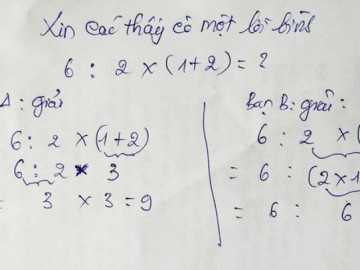 Xin các thầy cô một lời bình
6 : 2 × (1+2) = ?
A : giải
6 : 2 × (1+2)
6 : 2 × 3
= 3 × 3 = 9
Bạn B : giải :
6 : 2 × (
= 6 : (2×1
= 6 : 6